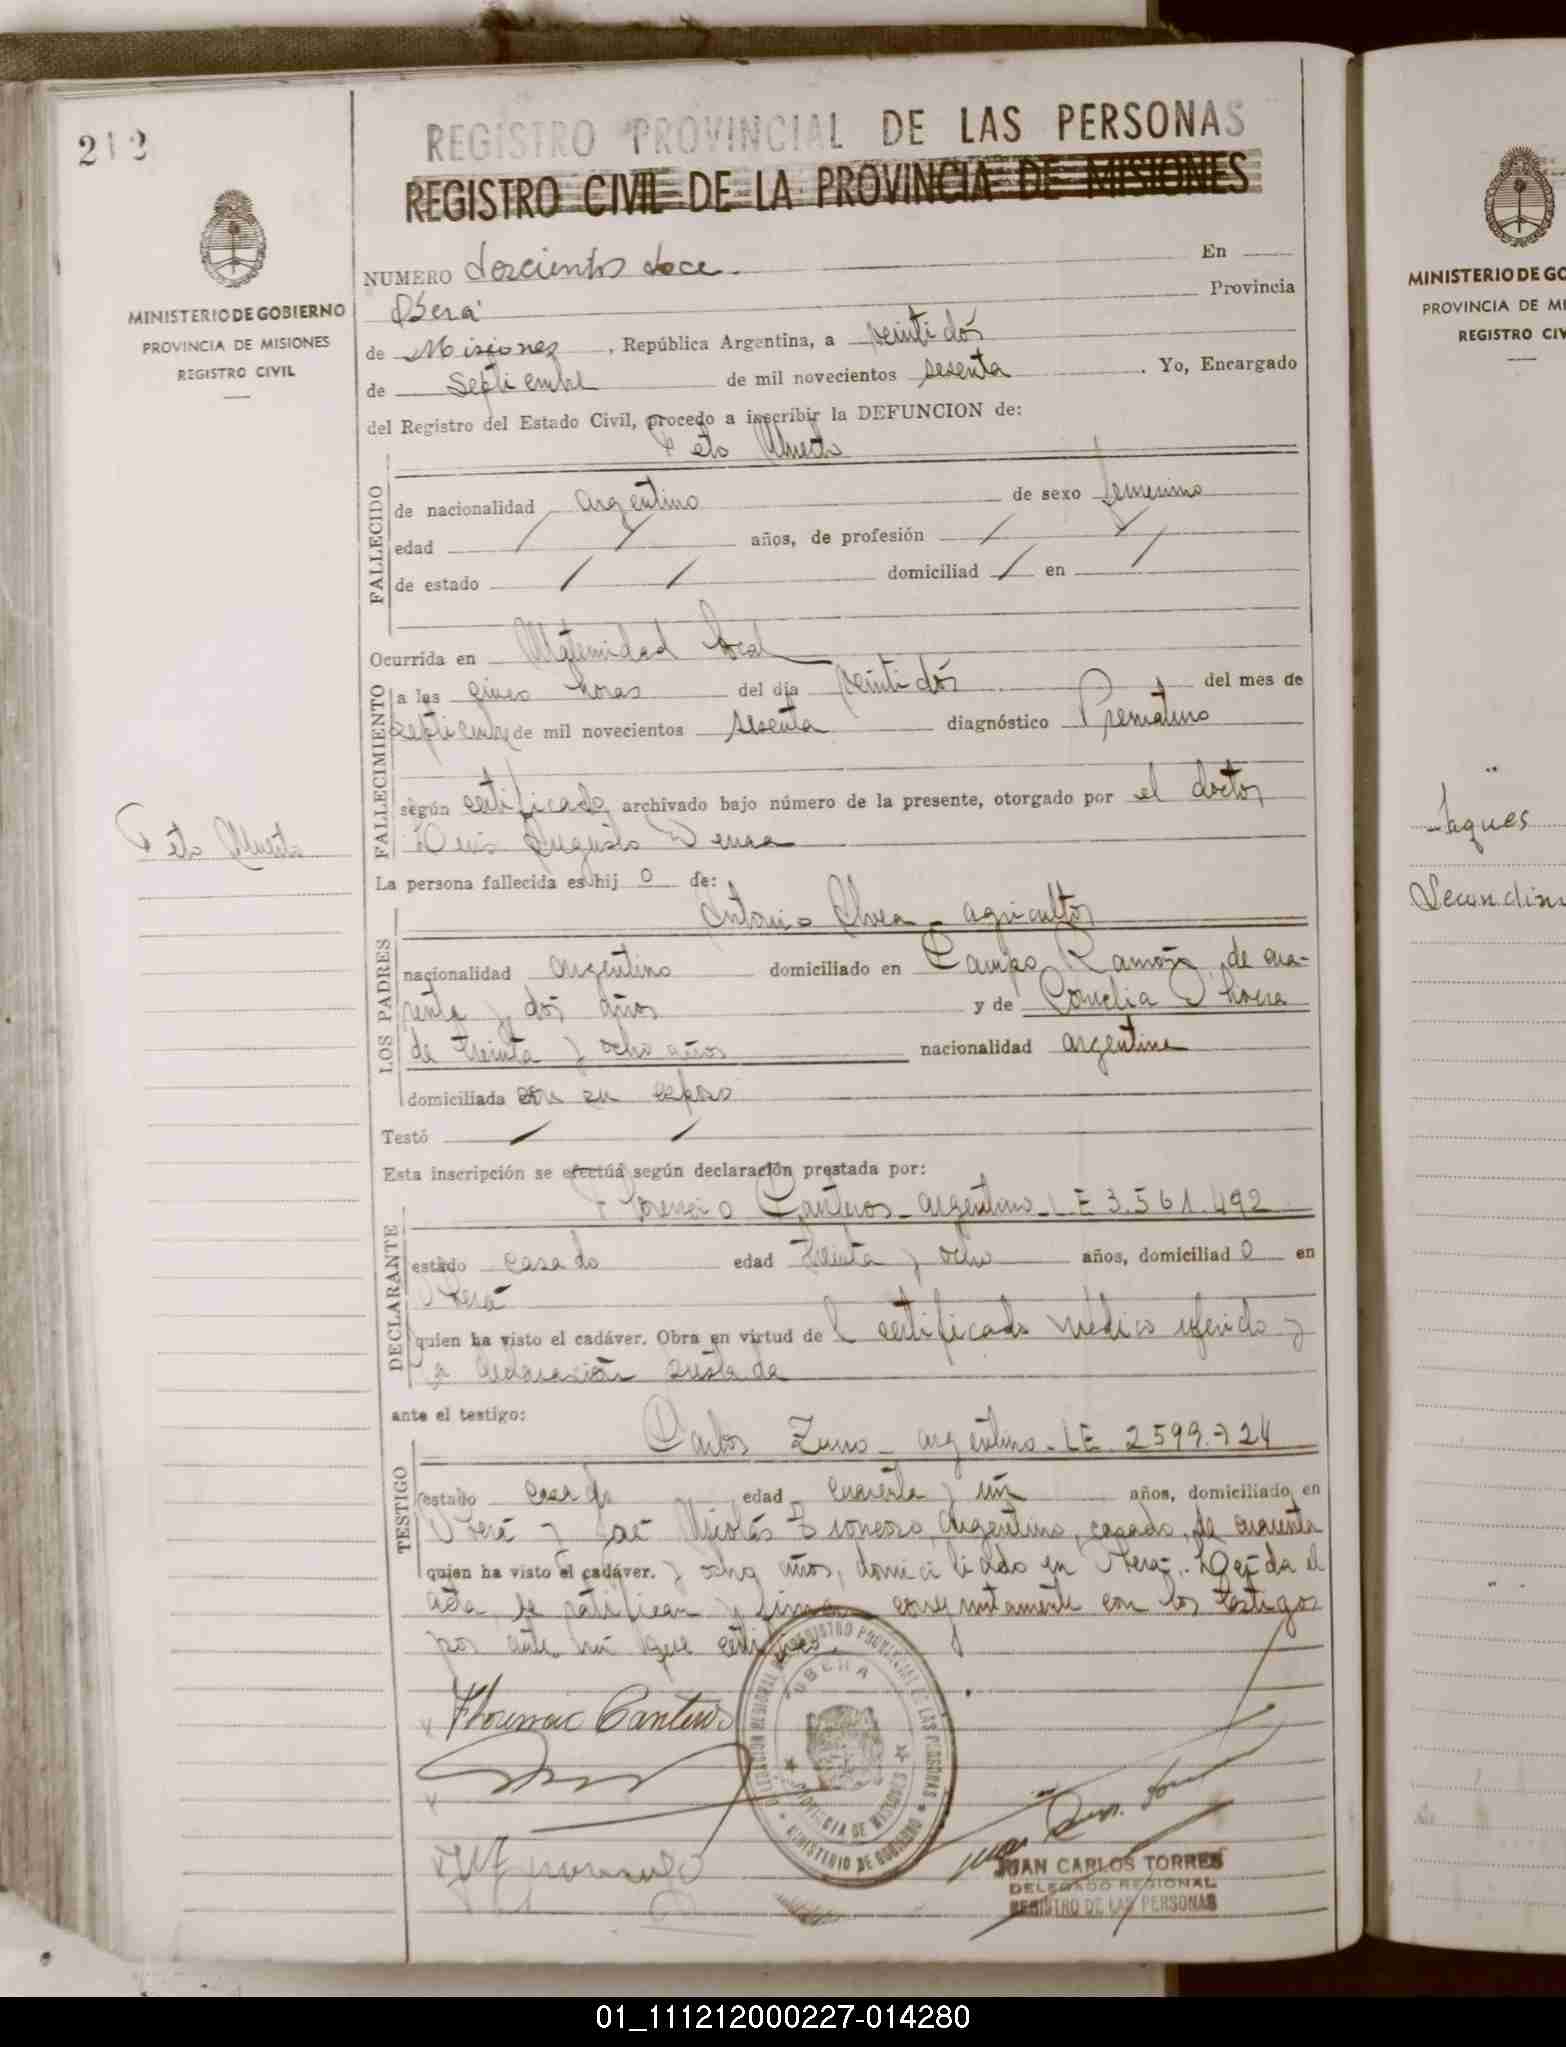 212
REGISTRO PROVINCIAL DE LAS PERSONAS
REGISTRO CIVIL DE LA PROVINCIA DE MISIONES
MINISTERIO DE GOBIERNO
PROVINCIA DE MISIONES
REGISTRO CIVIL
NUMERO doscientos doce. En
Oberá Provincia
de Misiones, República Argentina, a veintidós
de Septiembre de mil novecientos sesenta. Yo, Encargado
del Registro del Estado Civil, procedo a inscribir la DEFUNCION de:
Feto Muerto
FALLECIDO
de nacionalidad argentino de sexo femenino
edad / / años, de profesión / /
de estado / / domiciliad / en /
FALLECIMIENTO
Ocurrida en Maternidad local
a las cinco horas del día veintidós del mes de
septiembre de mil novecientos sesenta diagnóstico Prematuro
según certificado archivado bajo número de la presente, otorgado por el doctor
Luis Augusto
Feto Muerto
La persona fallecida es hij o de:
LOS PADRES
Antonio agricultor
nacionalidad argentino domiciliado en Campo Ramón, de cua-
renta y dos años y de
de treinta y ocho años nacionalidad argentina
domiciliada con su esposo
Testó / /
Esta inscripción se efectúa según declaración prestada por:
DECLARANTE
Florencio Canteros - argentino - LE 3.561.492
estado casado edad treinta y ocho años, domiciliad o en
Oberá
quien ha visto el cadáver. Obra en virtud del certificado médico referido y
la declaración prestada
ante el testigo:
TESTIGO
Carlos argentino - LE 2599.724
estado casado edad cuarenta y un años, domiciliado en
Oberá y José Nicolás argentino, casado, de cuarenta
quien ha visto el cadáver. y ocho años, domiciliado en Oberá. Leída el
acta, la ratifican y firman conjuntamente con los testigos
por ante mí que certifico.
Florencio Canteros
DELEGACION REGIONAL REGISTRO PROVINCIAL DE LAS PERSONAS
OBERA
PROVINCIA DE MISIONES
MINISTERIO DE GOBIERNO
JUAN CARLOS TORRES
DELEGADO REGIONAL
REGISTRO DE LAS PERSONAS
MINISTERIO DE GO
PROVINCIA DE MI
REGISTRO CIV
Jaques
Secondin
01_111212000227-014280